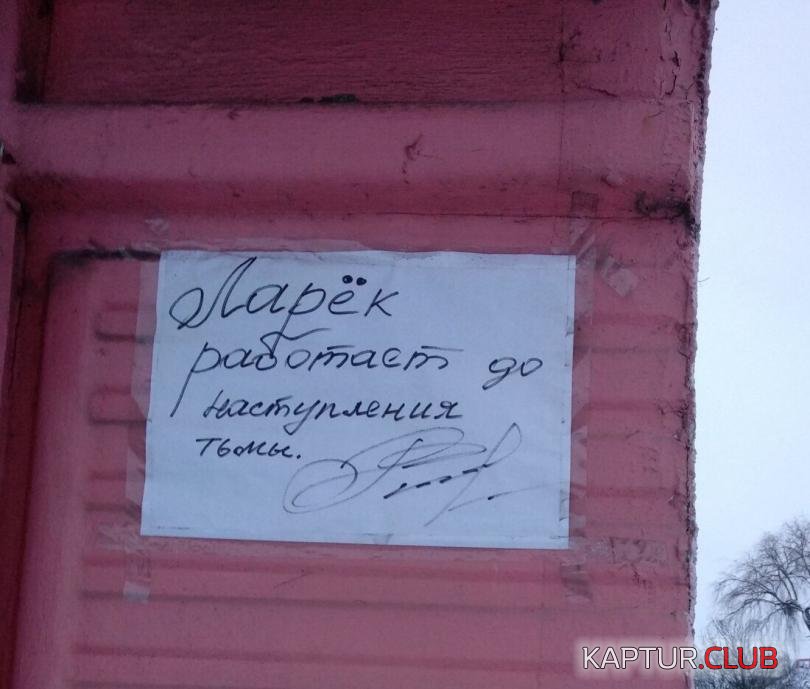 Ларёк
работает до
наступления
тьмы.
KAPTUR.CLUB